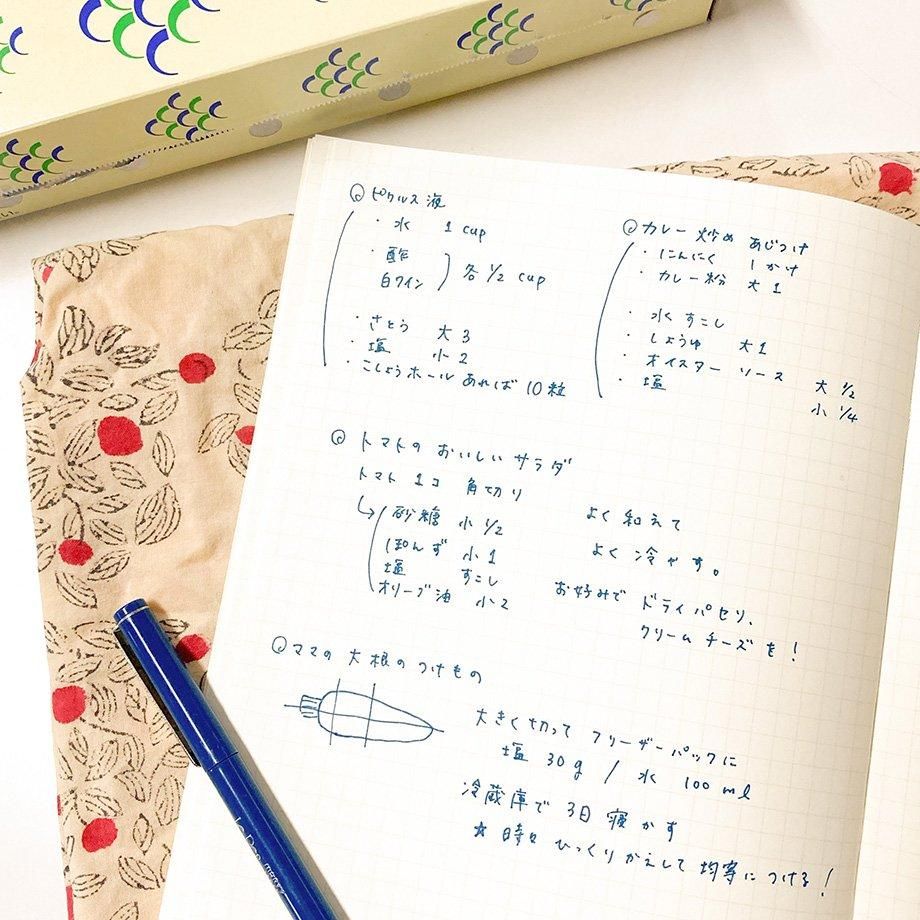 ピクルス液
・水 1 cup
・酢
白ワイン
各 1/2 cup
・さとう 大3
・塩 小2
・こしょうホール あれば 10粒
カレー炒め あじつけ
・にんにく 1かけ
・カレー粉 大1
・水 すこし
・しょうゆ 大1
・オイスターソース 大1/2
・塩 小1/4
トマトのおいしいサラダ
トマト 1コ 角切り
砂糖 小1/2
ぽんず 小1
塩 すこし
オリーブ油 小2
よく和えて
よく冷やす。
お好みで ドライパセリ、
クリームチーズを!
ママの大根のつけもの
大きく切って フリーザーパックに
塩 30g / 水 100ml
冷蔵庫で 3日 寝かす
☆ 時々 ひっくりかえして 均等に つける!